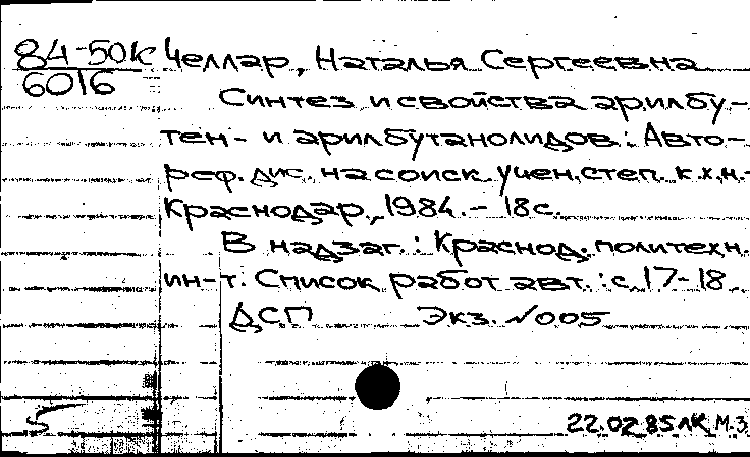 84-50к
6016
Челлар, Наталья Сергеевна
Синтез и свойства арилбу-
тен- и арилбутанолидов: Авто-
реф. дис. на соиск. учен. степ. к.х.н.-
Краснодар, 1984. - 18с.
В надзаг.: Краснод. политехн.
ин-т. Список работ авт.: с. 17-18
ДСП Экз. №005
5
22.02.85 ЛК М.З.